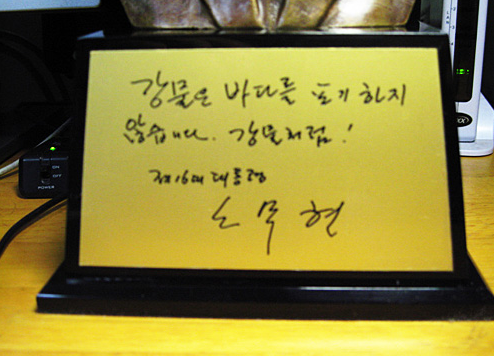 강물은 바다를 포기하지
않습니다. 강물처럼!
제16대 대통령
노무현
ON
OFF
POWER